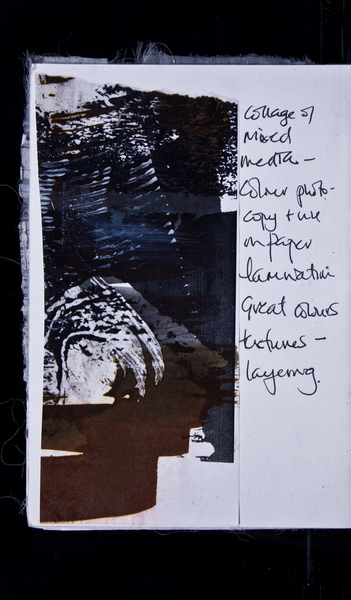 collage of
mixed
media –
colour photo-
copy + use
on paper
lamination
Great colours
textures –
layering.